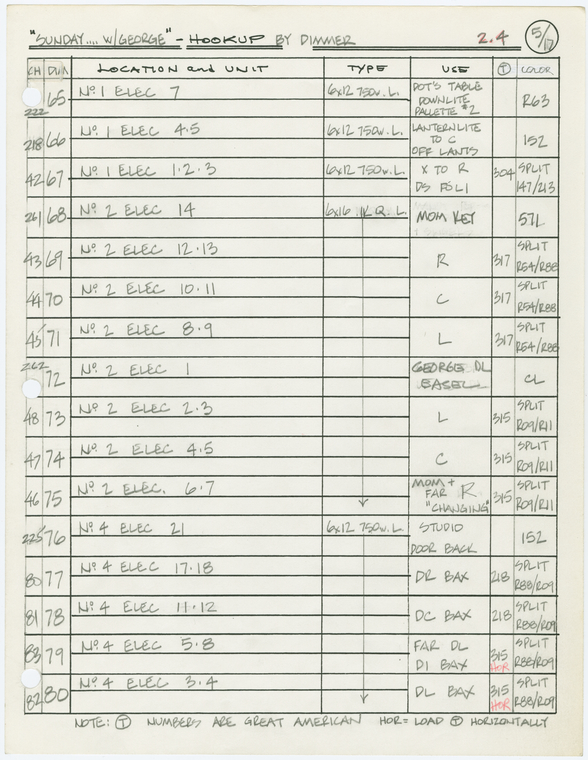 "SUNDAY.... W/GEORGE" - HOOKUP BY DIMMER 2.4 5/17
CH DIM LOCATION and UNIT TYPE USE T COLOR
222 65 Nº 1 ELEC 7 6x12 750w. L. DOT'S TABLE DOWNLITE PALLETTE #2 R63
218 66 Nº 1 ELEC 4·5 6x12 750w. L. LANTERNLITE TO C OFF LANTS 152
42 67 Nº 1 ELEC 1·2·3 6x12 750w. L. X TO R DS FOLI 304 SPLIT 147/213
261 68 Nº 2 ELEC 14 6x16 1K Q. L. MOM KEY 571
43 69 Nº 2 ELEC 12·13 R 317 SPLIT R54/R88
44 70 Nº 2 ELEC 10·11 C 317 SPLIT R54/R88
45 71 Nº 2 ELEC 8·9 L 317 SPLIT R54/R88
262 72 Nº 2 ELEC 1 GEORGE DL EASEL CL
48 73 Nº 2 ELEC 2·3 L 315 SPLIT R09/R11
47 74 Nº 2 ELEC 4·5 C 315 SPLIT R09/R11
46 75 Nº 2 ELEC. 6·7 MOM + FAR R "CHANGING" 315 SPLIT R09/R11
225 76 Nº 4 ELEC 21 6x12 750w. L. STUDIO DOOR BACK 152
80 77 Nº 4 ELEC 17·18 DR BAX 218 SPLIT R88/R09
81 78 Nº 4 ELEC 11·12 DC BAX 218 SPLIT R88/R09
83 79 Nº 4 ELEC 5·8 FAR DL D1 BAX 315 HOR SPLIT R88/R09
82 80 Nº 4 ELEC 3·4 DL BAX 315 HOR SPLIT R88/R09
NOTE: T NUMBERS ARE GREAT AMERICAN HOR= LOAD T HORIZONTALLY